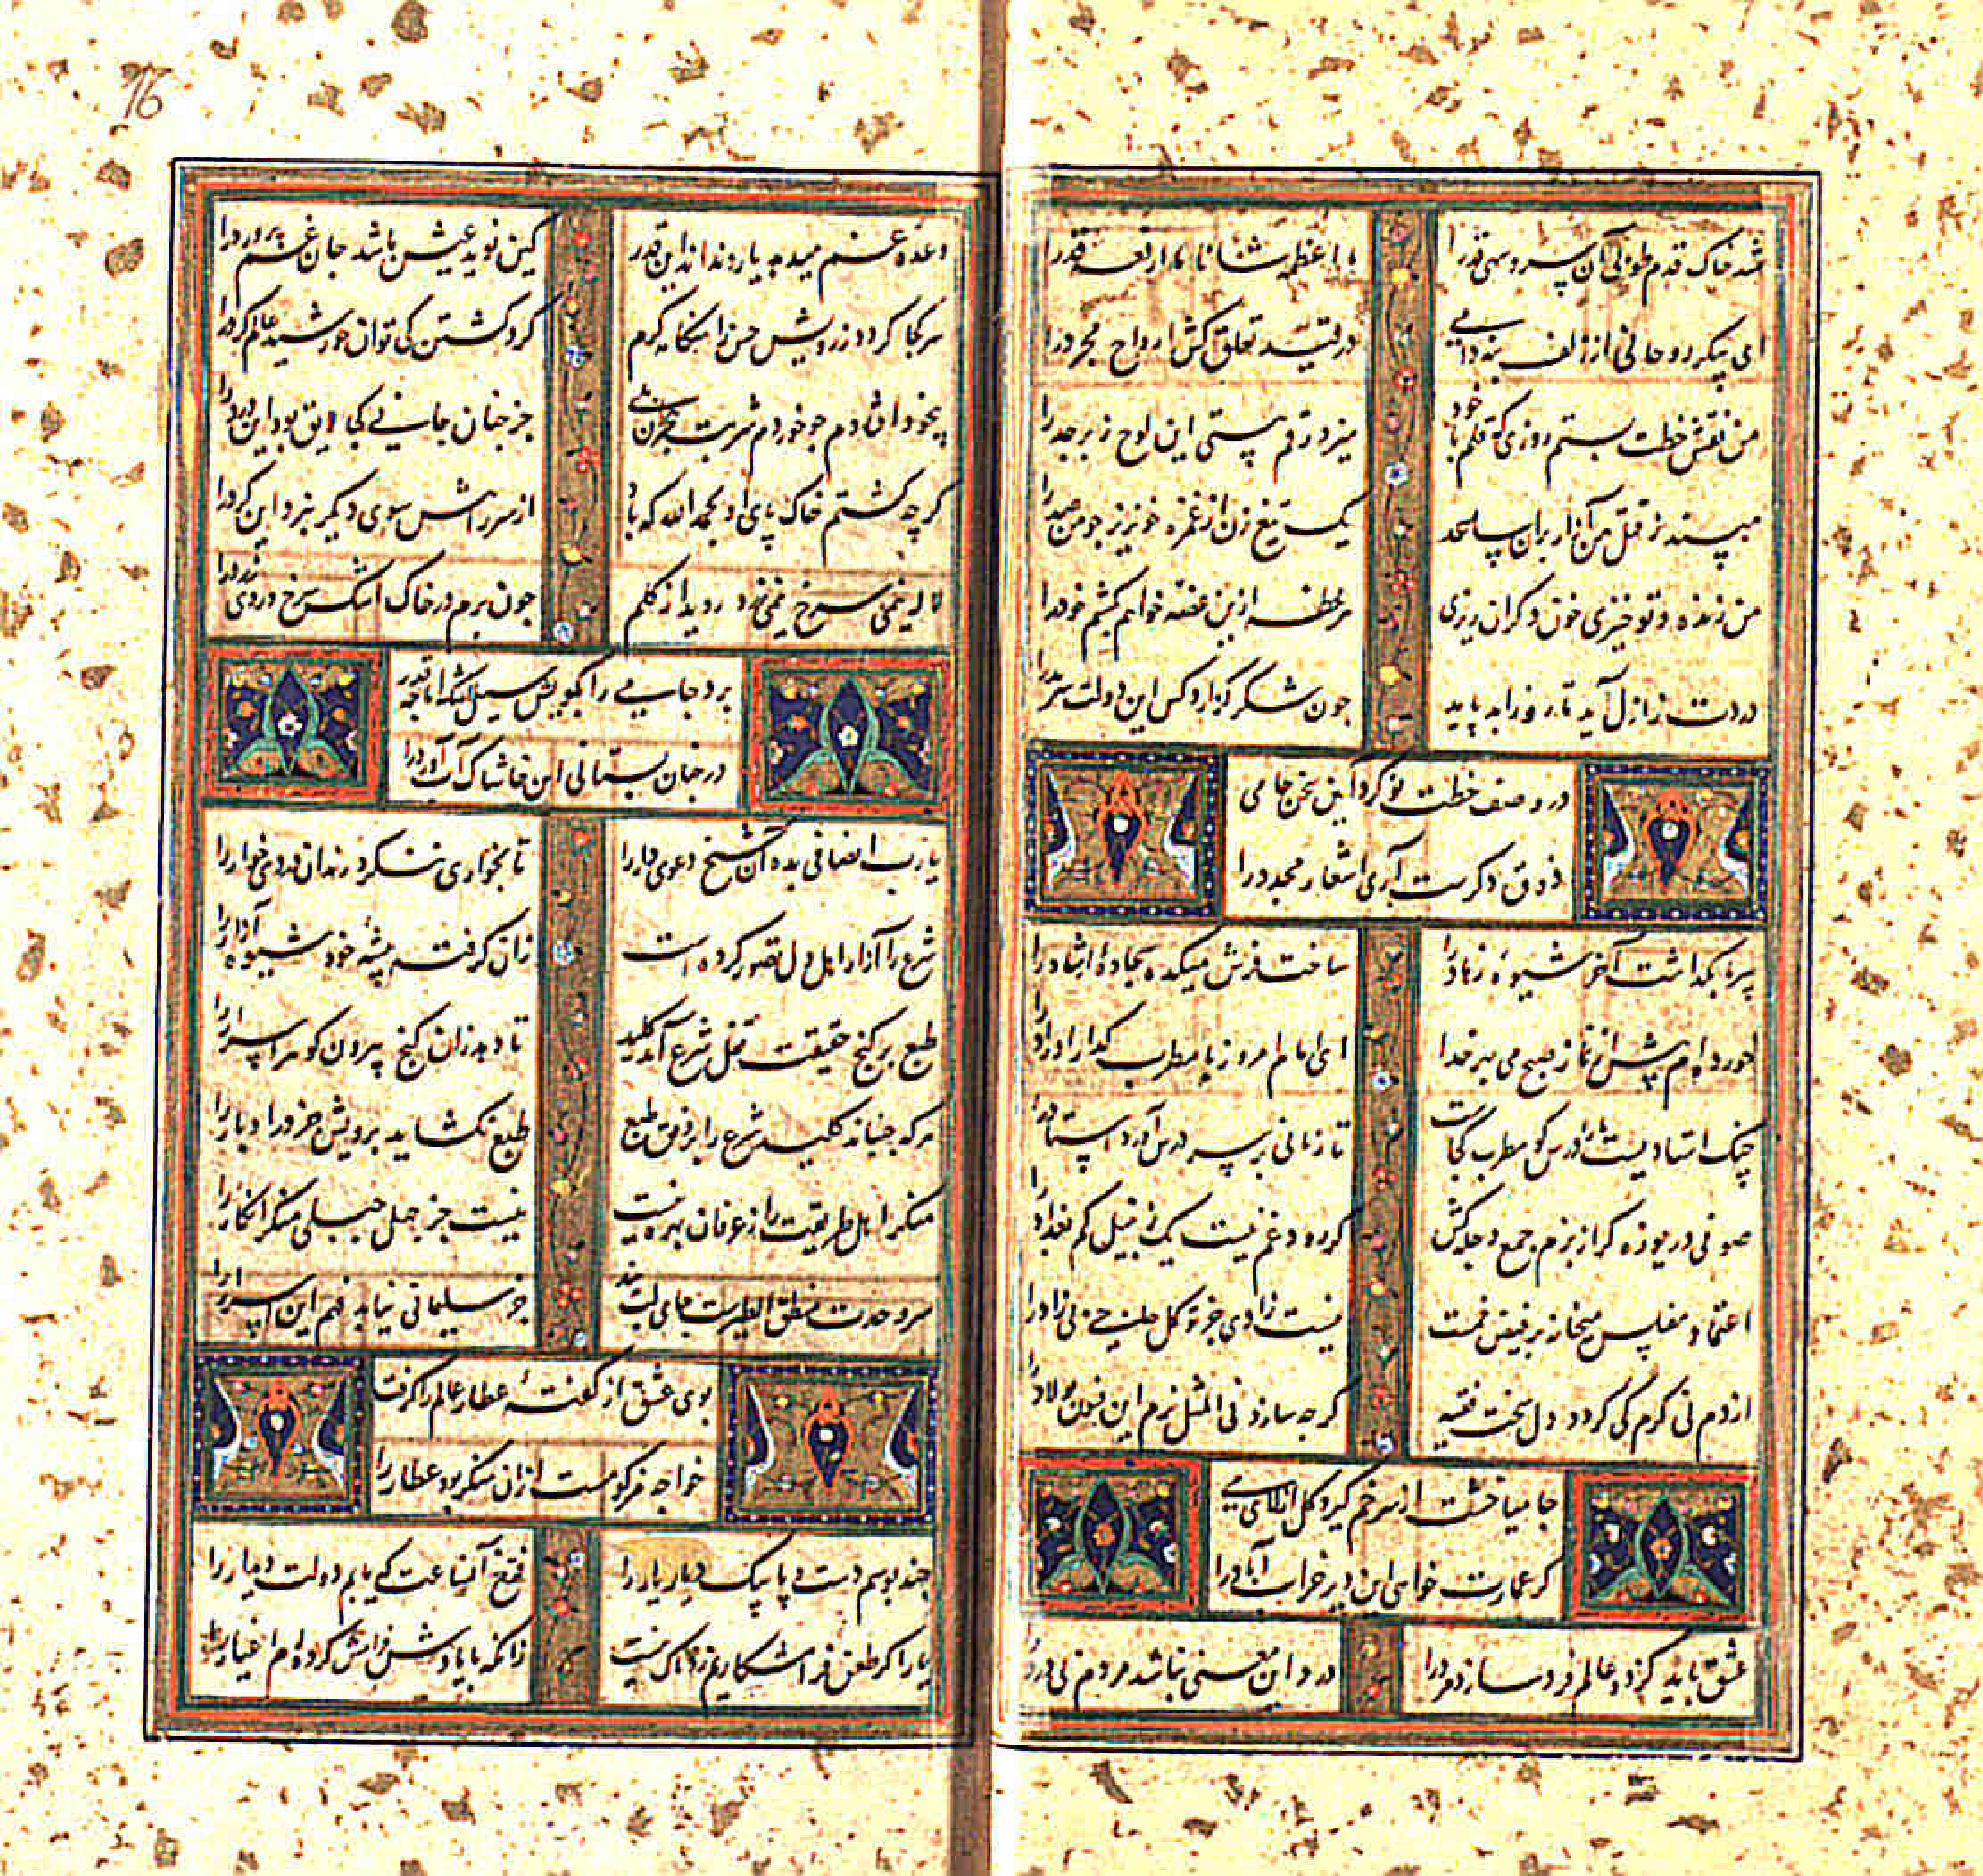 شد خاک قدم طوبی آن سرو سهی قد را
ما اعظمه شانا ما ارفعه قدرا
ای پیکر روحانی از زلف بنه دامی
در قید تعلق کش ارواح مجرد را
من نقش خطت بستم روزی که قلم با خود
میزد رقم هستی این لوح زبرجد را
مپسند ز قتل من آزار بران ساعد
یک تیغ زن از غمزه خونریز چو من صد را
من زنده و تو خیزی خون دگران ریزی
هر لحظه ازین غصه خواهم بکشم خود را
دردت ز ازل آید تا روز ابد پاید
چون شکر گزارد کس این دولت سرمد را
در وصف خطت نو کرد این سخن جامی
ذوق دگرست آری اشعار مجدد را
پیر ما بگذاشت آخر شیوه زهاد را
ساخت فرش میکده سجاده ارشاد را
خورده‌ام پیش از نماز صبح می بهر خدا
ای امام امروز با مطرب گذار اوراد را
چنگ استادیست ما را درس گو مطرب کجاست
تا زمانی بر سر درس آورد استاد را
صوفی دریوزه گر از بزم جمع دجله کش
گر رود غم نیست یک زنبیل کم بغداد را
اعتماد مفلس میخانه بر فیض خمست
نیست زادی جز توکل صلحی بی زاد را
از دم نی گرم کی گردد دل سخت فقیه
گر چه سازد فی المثل نرم این فسون پولاد را
جامیا خشت از سر خم گیر و گل از لای می
گر عمارت خواهی این دیر خراب آباد را
عشق باید کز دو عالم فرد سازد مرد را
درد این معنی نباشد مردم بی درد را
وعده غم میدهد یار و نداند این قدر
کین نوید عیش باشد جان غم پرورد را
هر کجا گردد ز رویش حسن را هنگامه گرم
گرد گشتن کی توان خورشید عالم گرد را
بیخود افتادم چو خوردم شربت هجران می
جز چنان جامی کجا لایق بود این درد را
گر چه گشتم خاک پای او بحمد الله که باد
از سر راهش بسوی دیگر نبرد این گرد را
لاله نی سرخ نی زرد روید از گلم
چون برم در خاک اشک سرخ و روی زرد را
برد جامی را بکویش سیل اشک اما چه قدر
در چنان بستانی این خاشاک آب آورد را
یارب انصافی بده آن شیخ دعوی دار را
تا بخواری ننگرد رندان دردی خوار را
شرع را آزار اهل دل تصور کرده است
زان گرفته پیشه خود شیوه آزار را
طبع بر گنج حقیقت قفل شرع آمد کلید
تا دهد زان گنج بیرون گوهر اسرار را
هر که جنباند کلید شرع را بر وفق طبع
طبع نگشاید برویش جز در ادبار را
منکر اهل طریقت را ز عرفان بهره نیست
نیست جز جهل جبلی منکر انکار را
سر وحدت منطق الطیرست جامی لب ببند
جز سلیمانی نیابد فهم این اسرار را
بوی عشق از گفته عطار عالم را گرفت
خواجه مزکومست ازان منکر بود عطار را
چند بوسم دست و پا پیک دیار یار را
فرخ آنساعت که یابم دولت دیدار را
یار اگر طعن فراموشکاریم زد باک نیست
زانکه با یادش فرامش کرده‌ام اغیار را
76